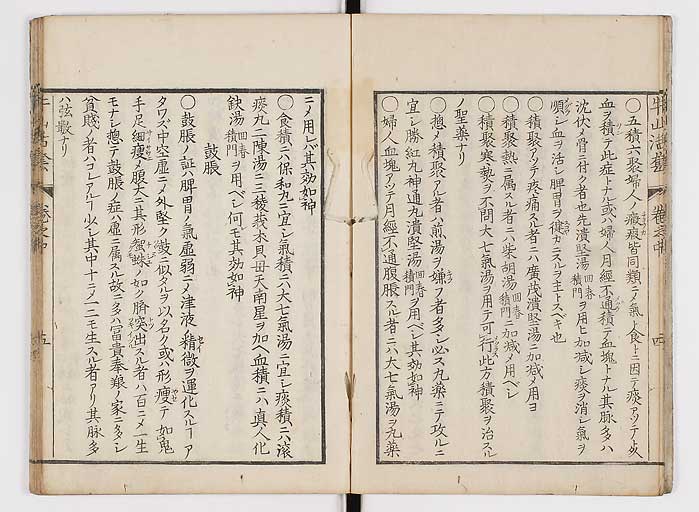 牛山活套 卷之中 四
○五積六聚婦人ノ癥瘕皆同類ニノ氣ト食トニ因テ痰アツテ或
血ヲ積テ此症トナル或ハ婦人月經不通積テ血塊トナル其脉多ハ
沈伏メ骨ニ付ク者也先潰堅湯回春積門ヲ用ヒ加減シ痰ヲ消シ氣ヲ
順シ血ヲ活シ脾胃ヲ健カニスルヲ主トスベキ也
○積聚アツテ疼痛スル者ニハ廣茂潰堅湯ニ加減メ用ヨ
○積聚熱ニ属スル者ニハ柴胡湯回春積門ニ加減メ用ベシ
○積聚寒熱ヲ不問大七氣湯ヲ用テ可行此方積聚ヲ治スル
ノ聖藥ナリ
○惣メ積聚アル者ハ煎湯ヲ嫌フ者多シ必ハ丸藥ニテ攻ルニ
宜シ勝紅丸神通丸潰堅湯回春積門ヲ用ベシ其効如神
○婦人血塊アツテ月經不通腹脹スル者ニハ大七氣湯ヲ丸藥
ニノ用レバ其効如神
○食積ニハ保和丸ニ宜シ氣積ニハ大七氣湯ニ宜シ痰積ニハ滚
痰丸二陳湯ニ三稜莪朮貝母天南星ヲ加ヘ血積ニハ真人化
鉄湯回春積門ヲ用ベシ何モ其効如神
鼓脹
○鼓脹ノ証ハ脾胃ノ氣虚弱ニノ津液ノ精微ヲ運化スルヿア
タワズ中空虚ニノ外堅ク鼓ニ似タルヲ以名ク或ハ形瘦テ如鬼
手足細瘦メ腹大ニ其形蜘蛛ノ如ク臍突出スル者ハ百ニメ一生
モナシ惣テ鼓脹ノ症ハ虚ニ属スル故ニ多ハ冨貴奉飬ノ家ニ多シ
貧賤ノ者ハコレアルヿ少シ其中十ニノ一二モ生スル者アリ其脉多
ハ弦緊ナリ
卷之中 五